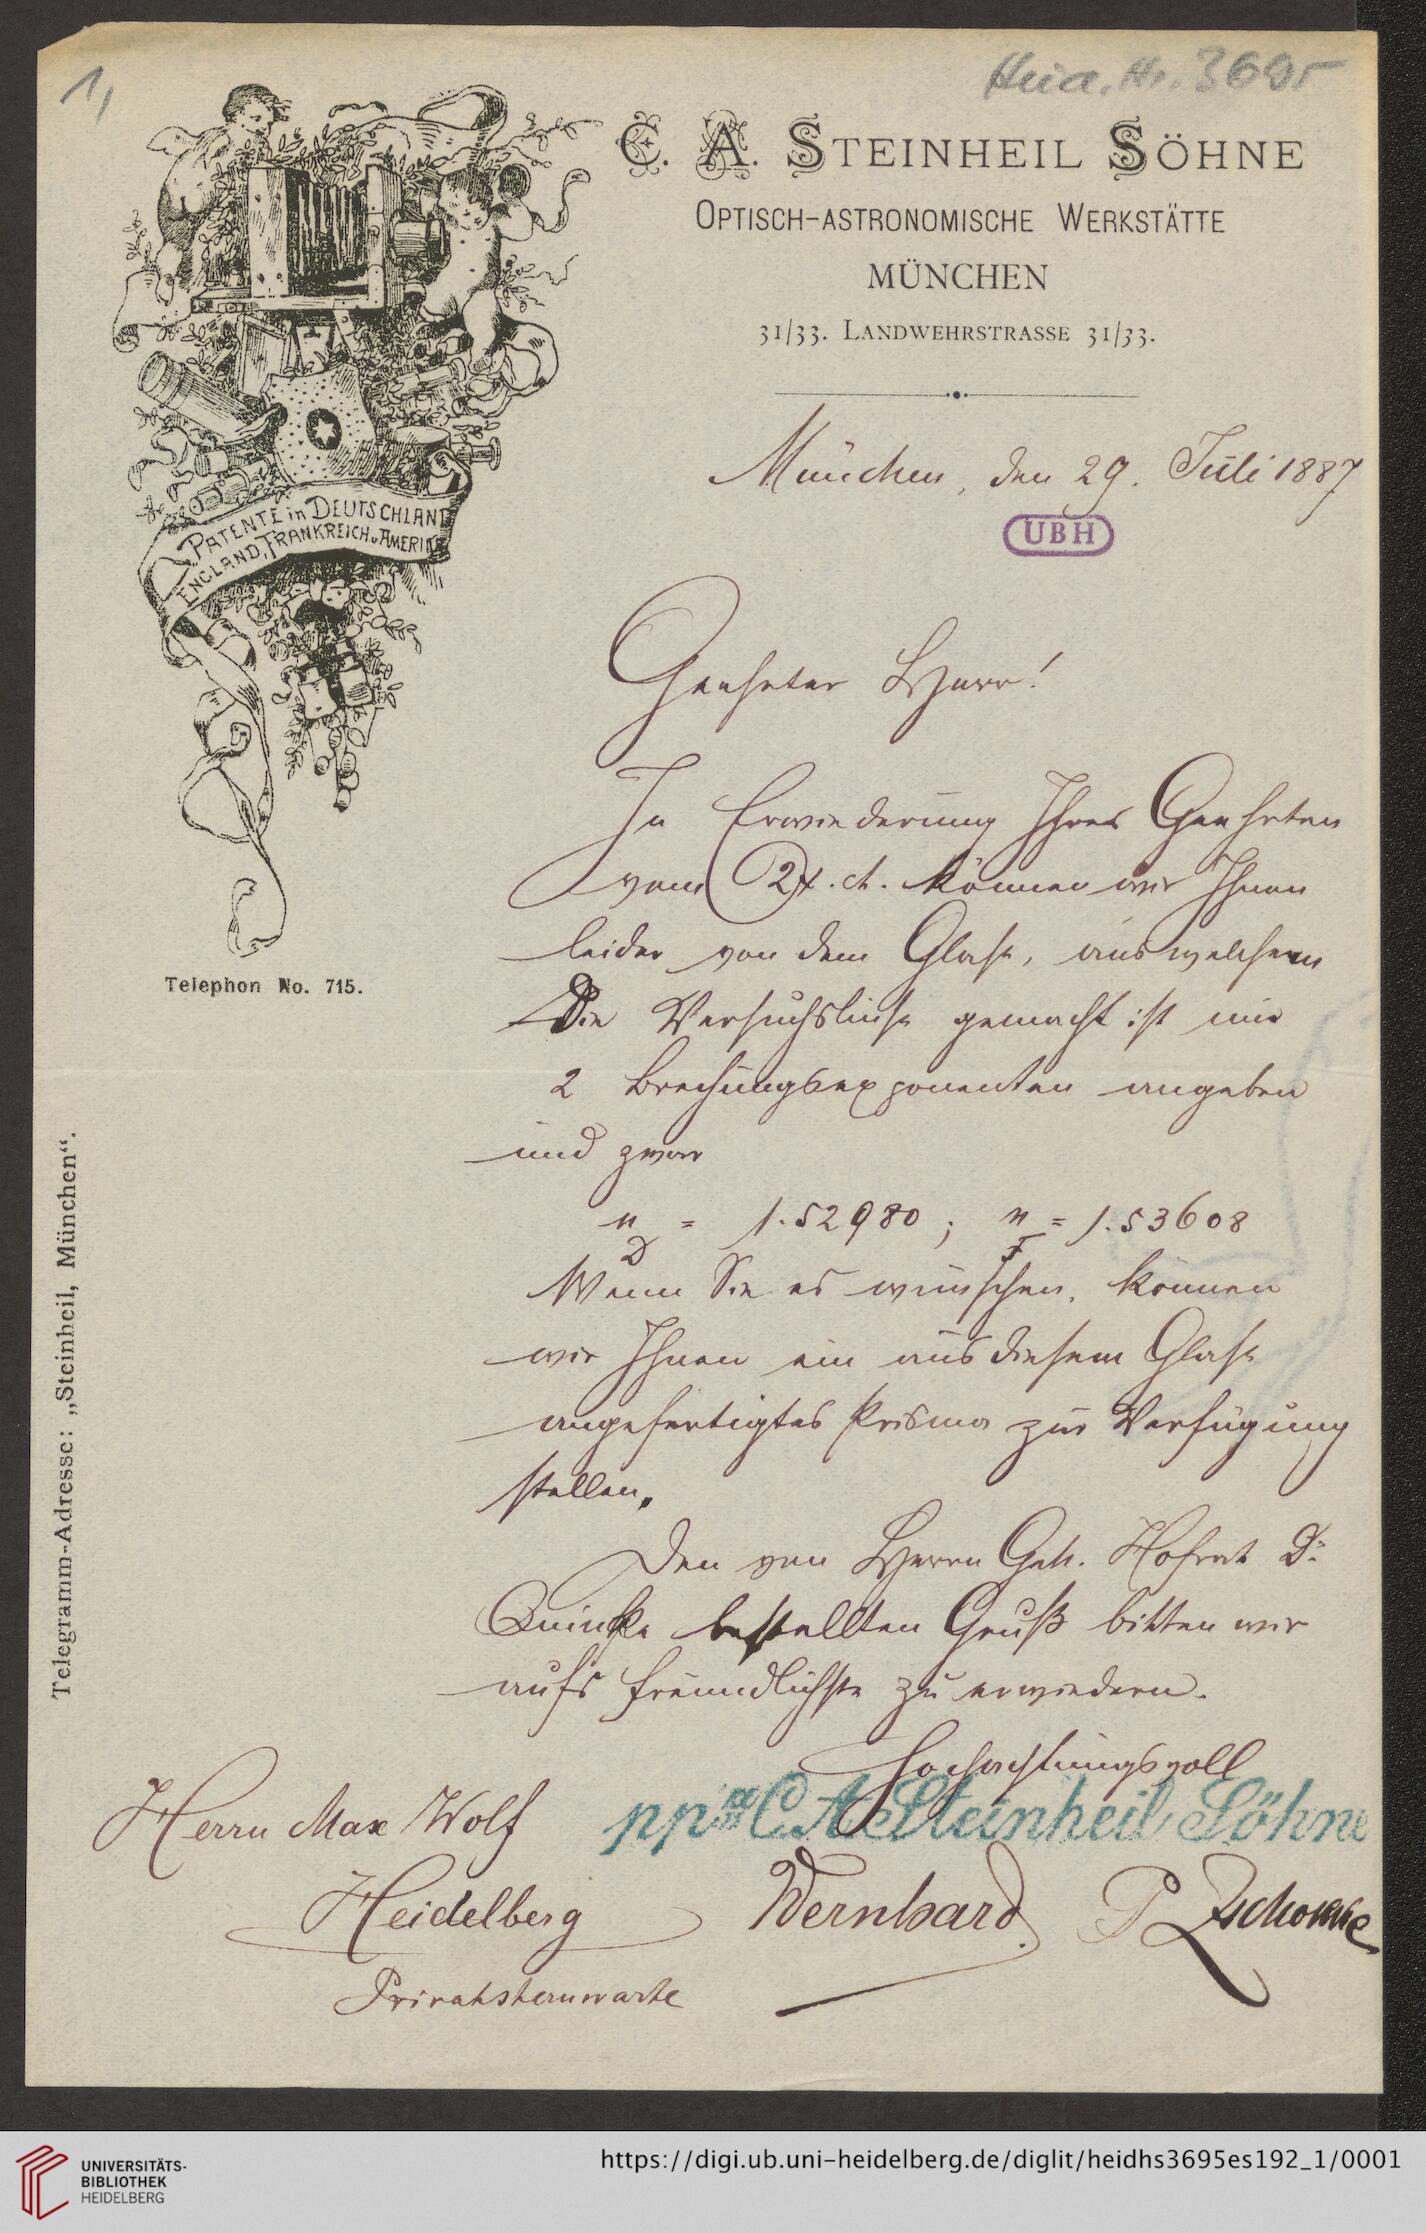 1,
Heid. Hs. 3695
C. A. STEINHEIL SÖHNE
OPTISCH-ASTRONOMISCHE WERKSTÄTTE
MÜNCHEN
31/33. LANDWEHRSTRASSE 31/33.
PATENTE in DEUTSCHLAND
ENGLAND, FRANKREICH u. AMERIKA
München, den 29. Juli 1887
UBH
Geehrter Herr!
In Erwiederung Ihres Geehrten
vom ct. können wir Ihnen
leider von dem Glase, aus welchem
Die Versuchslinse gemacht ist nur
2 Brechungsexponenten angeben
und zwar
n_D = 1.52980 ; n_F = 1.53608
Wenn Sie es wünschen, können
wir Ihnen ein aus diesem Glase
angefertigtes Prisma zur Verfügung
stellen.
Den von Herrn Geh. Hofrat Dr.
Quincke bestellten Gruß bitten wir
aufs freundlichste zu erwiedern.
Hochachtungsvoll
ppa C A Steinheil Söhne
Wernhard. P Zschokke
Herrn Max Wolf
Heidelberg
Privatsternwarte
Telephon No. 715.
Telegramm-Adresse: „Steinheil, München“.
UNIVERSITÄTS-
BIBLIOTHEK
HEIDELBERG
https://digi.ub.uni-heidelberg.de/diglit/heidhs3695es192_1/0001